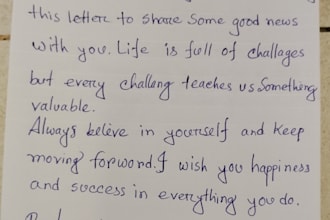 this letter to share some good news
with you. Life is full of challages
but every challeng teaches us Something
valuable.
Always beleve in yourself and keep
moving forword. I wish you happiness
and success in everything you do.